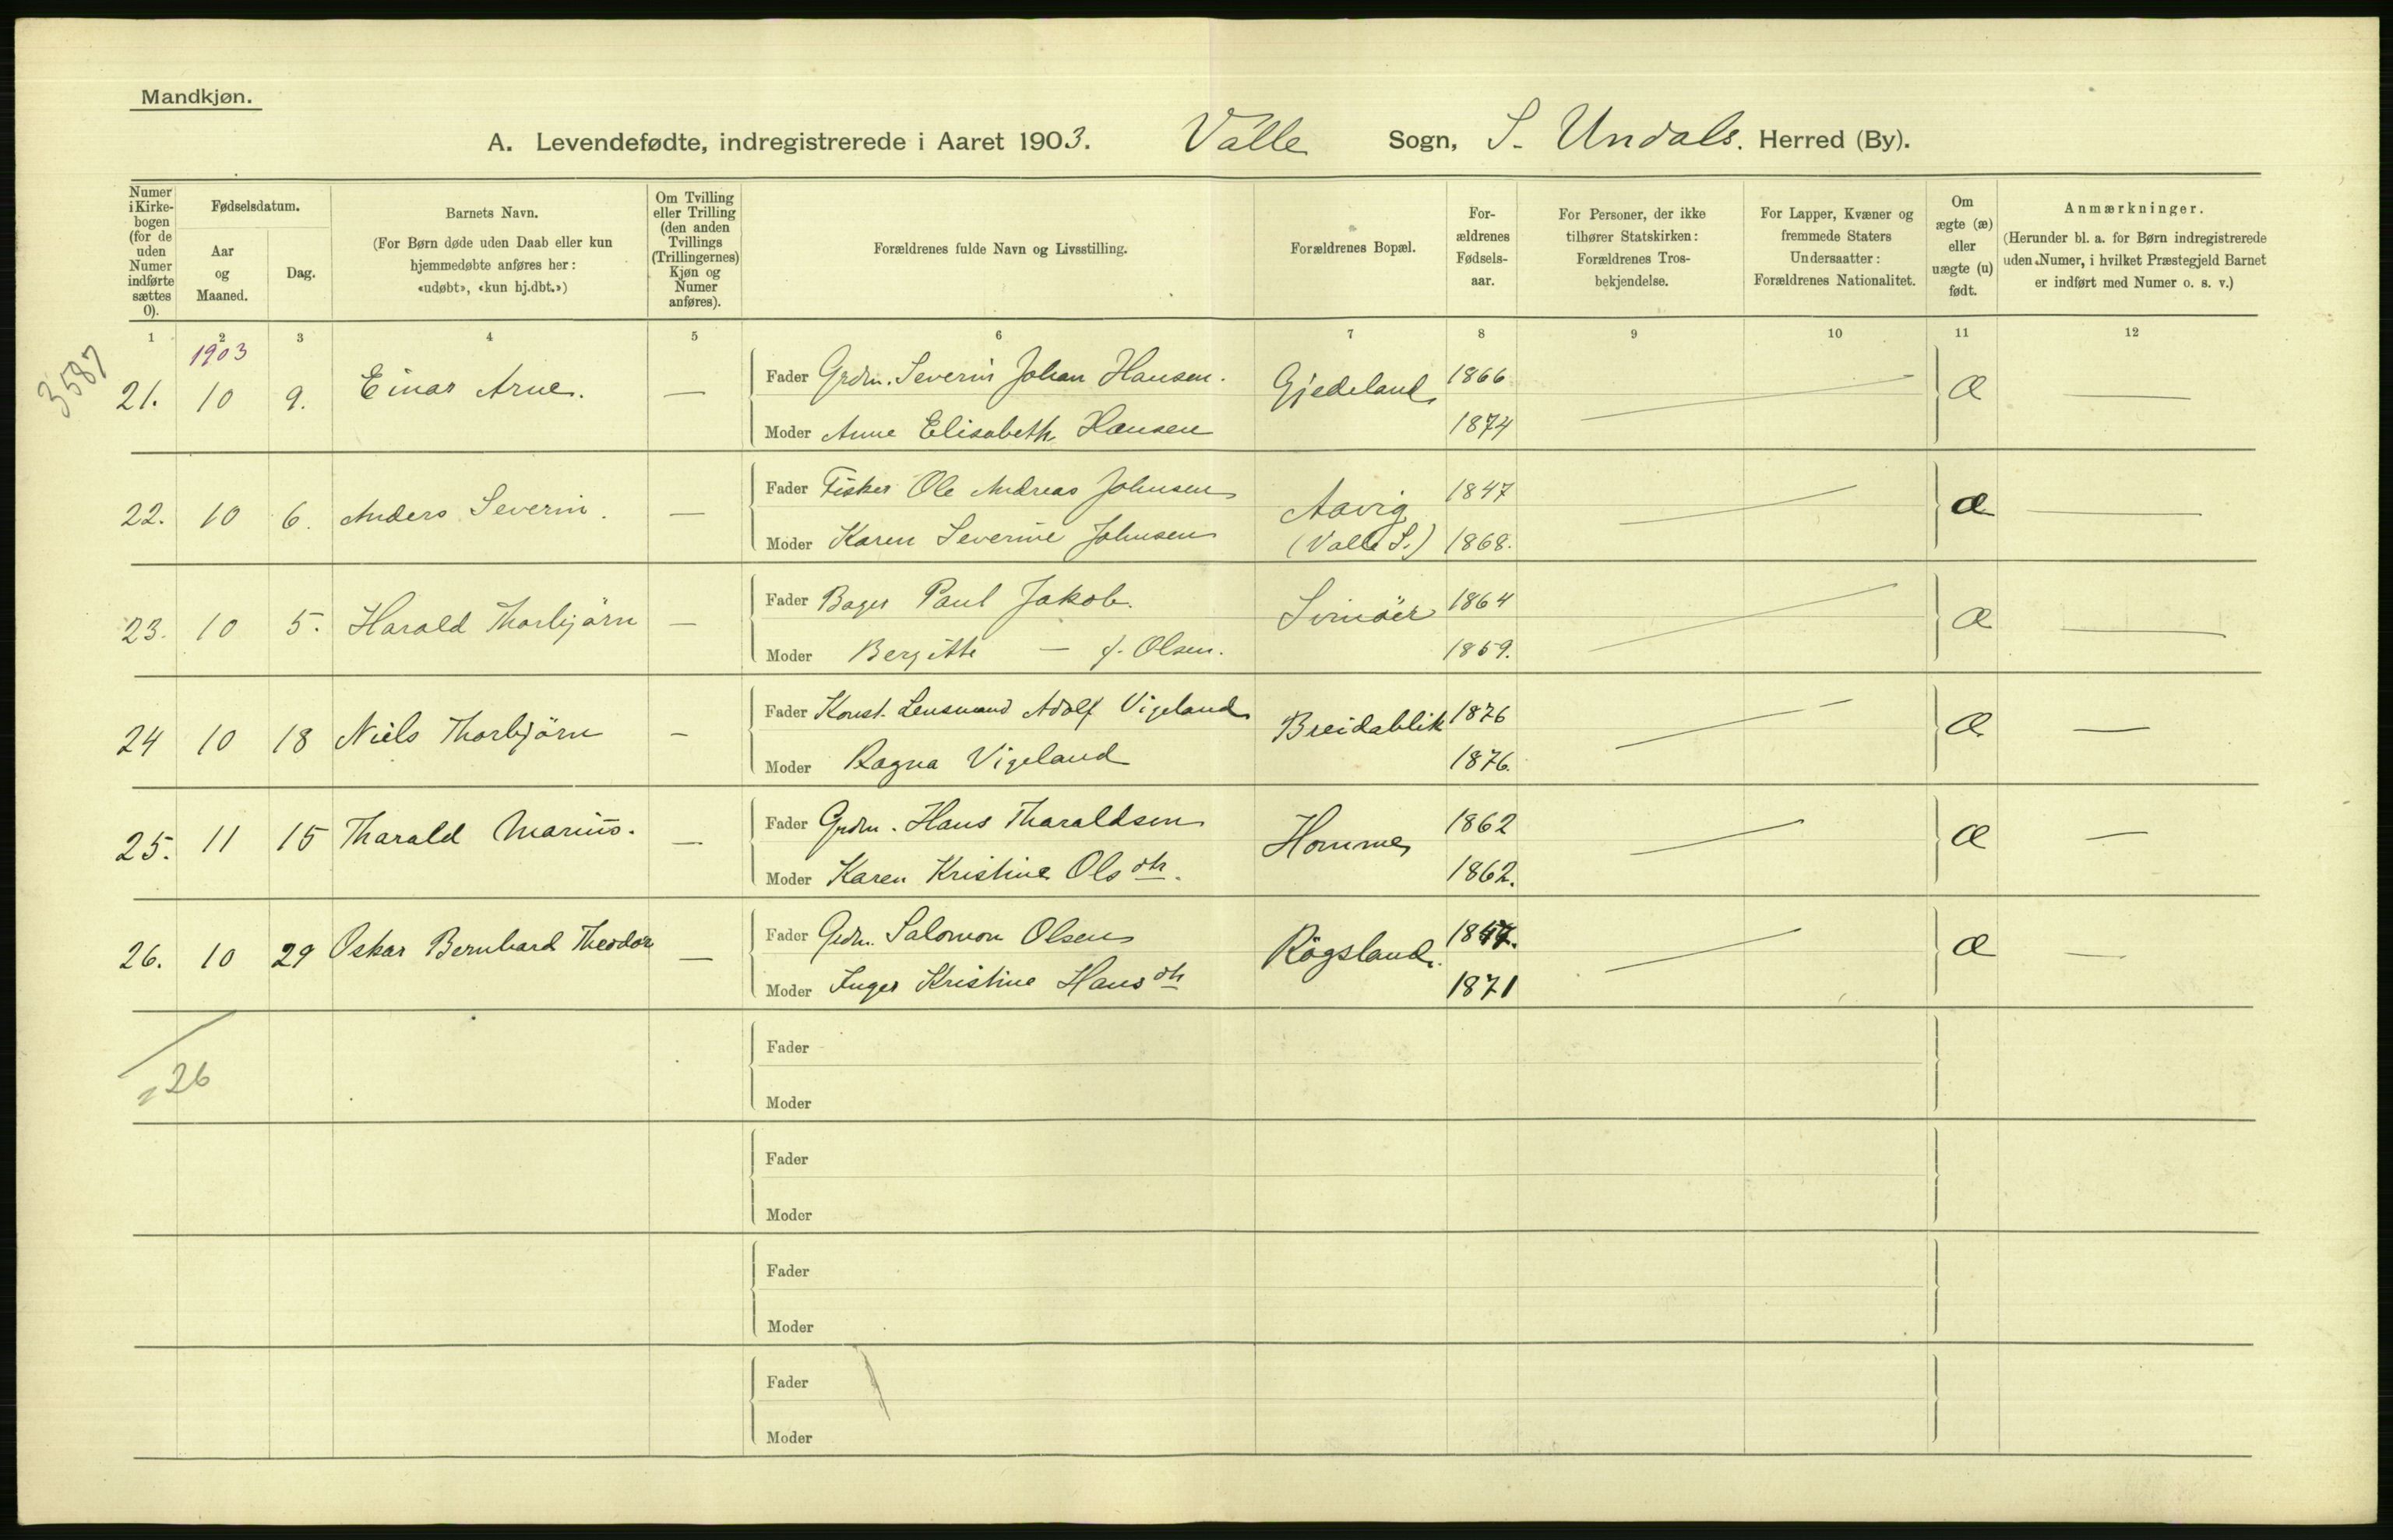 Mandkjøn.
A. Levendefødte, indregistrerede i Aaret 1903. Valle Sogn, S. Undals. Herred (By).
Numer i Kirkebogen (for de uden Numer indførte sættes 0).
Fødselsdatum.
Aar og Maaned.
Dag.
Barnets Navn.
(For Børn døde uden Daab eller kun hjemmedøbte anføres her: «udøbt», «kun hj.dbt.»)
Om Tvilling eller Trilling (den anden Tvillings (Trillingernes) Kjøn og Numer anføres).
Forældrenes fulde Navn og Livsstilling.
Forældrenes Bopæl.
Forældrenes Fødselsaar.
For Personer, der ikke tilhører Statskirken: Forældrenes Trosbekjendelse.
For Lapper, Kvæner og fremmede Staters Undersaatter: Forældrenes Nationalitet.
Om ægte (æ) eller uægte (u) født.
Anmærkninger.
(Herunder bl. a. for Børn indregistrerede uden Numer, i hvilket Præstegjeld Barnet er indført med Numer o. s. v.)
1 2 3 4 5 6 7 8 9 10 11 12
3587
1903
21. 10 9. Einar Arne. — Fader Grdm. Severin Johan Hansen. Gjedeland 1866 æ —
Moder Anne Elisabeth Hansen 1874
22. 10 6. Anders Severin. — Fader Fisker Ole Andreas Johnsen Aavig (Valle S.) 1847 æ —
Moder Karen Severine Johnsen 1868.
23. 10 5. Harald Thorbjörn — Fader Bager Paul Jakob. Svinöer 1864 æ —
Moder Bergitte — f. Olsen. 1859.
24 10 18 Niels Thorbjörn — Fader Konst. Lensmand Adolf Vigeland Breidablik 1876 æ —
Moder Ragna Vigeland 1876.
25. 11 15 Tharald Marius. — Fader Grdm. Hans Tharaldsen Homme 1862 æ —
Moder Karen Kristine Olsdtr. 1862.
26. 10 29 Oskar Bernhard Theodor — Fader Grdm. Salomon Olsen Rögsland. æ —
Moder Inger Kristine Hansdtr 1871
26
Fader
Moder
Fader
Moder
Fader
Moder
Fader
Moder